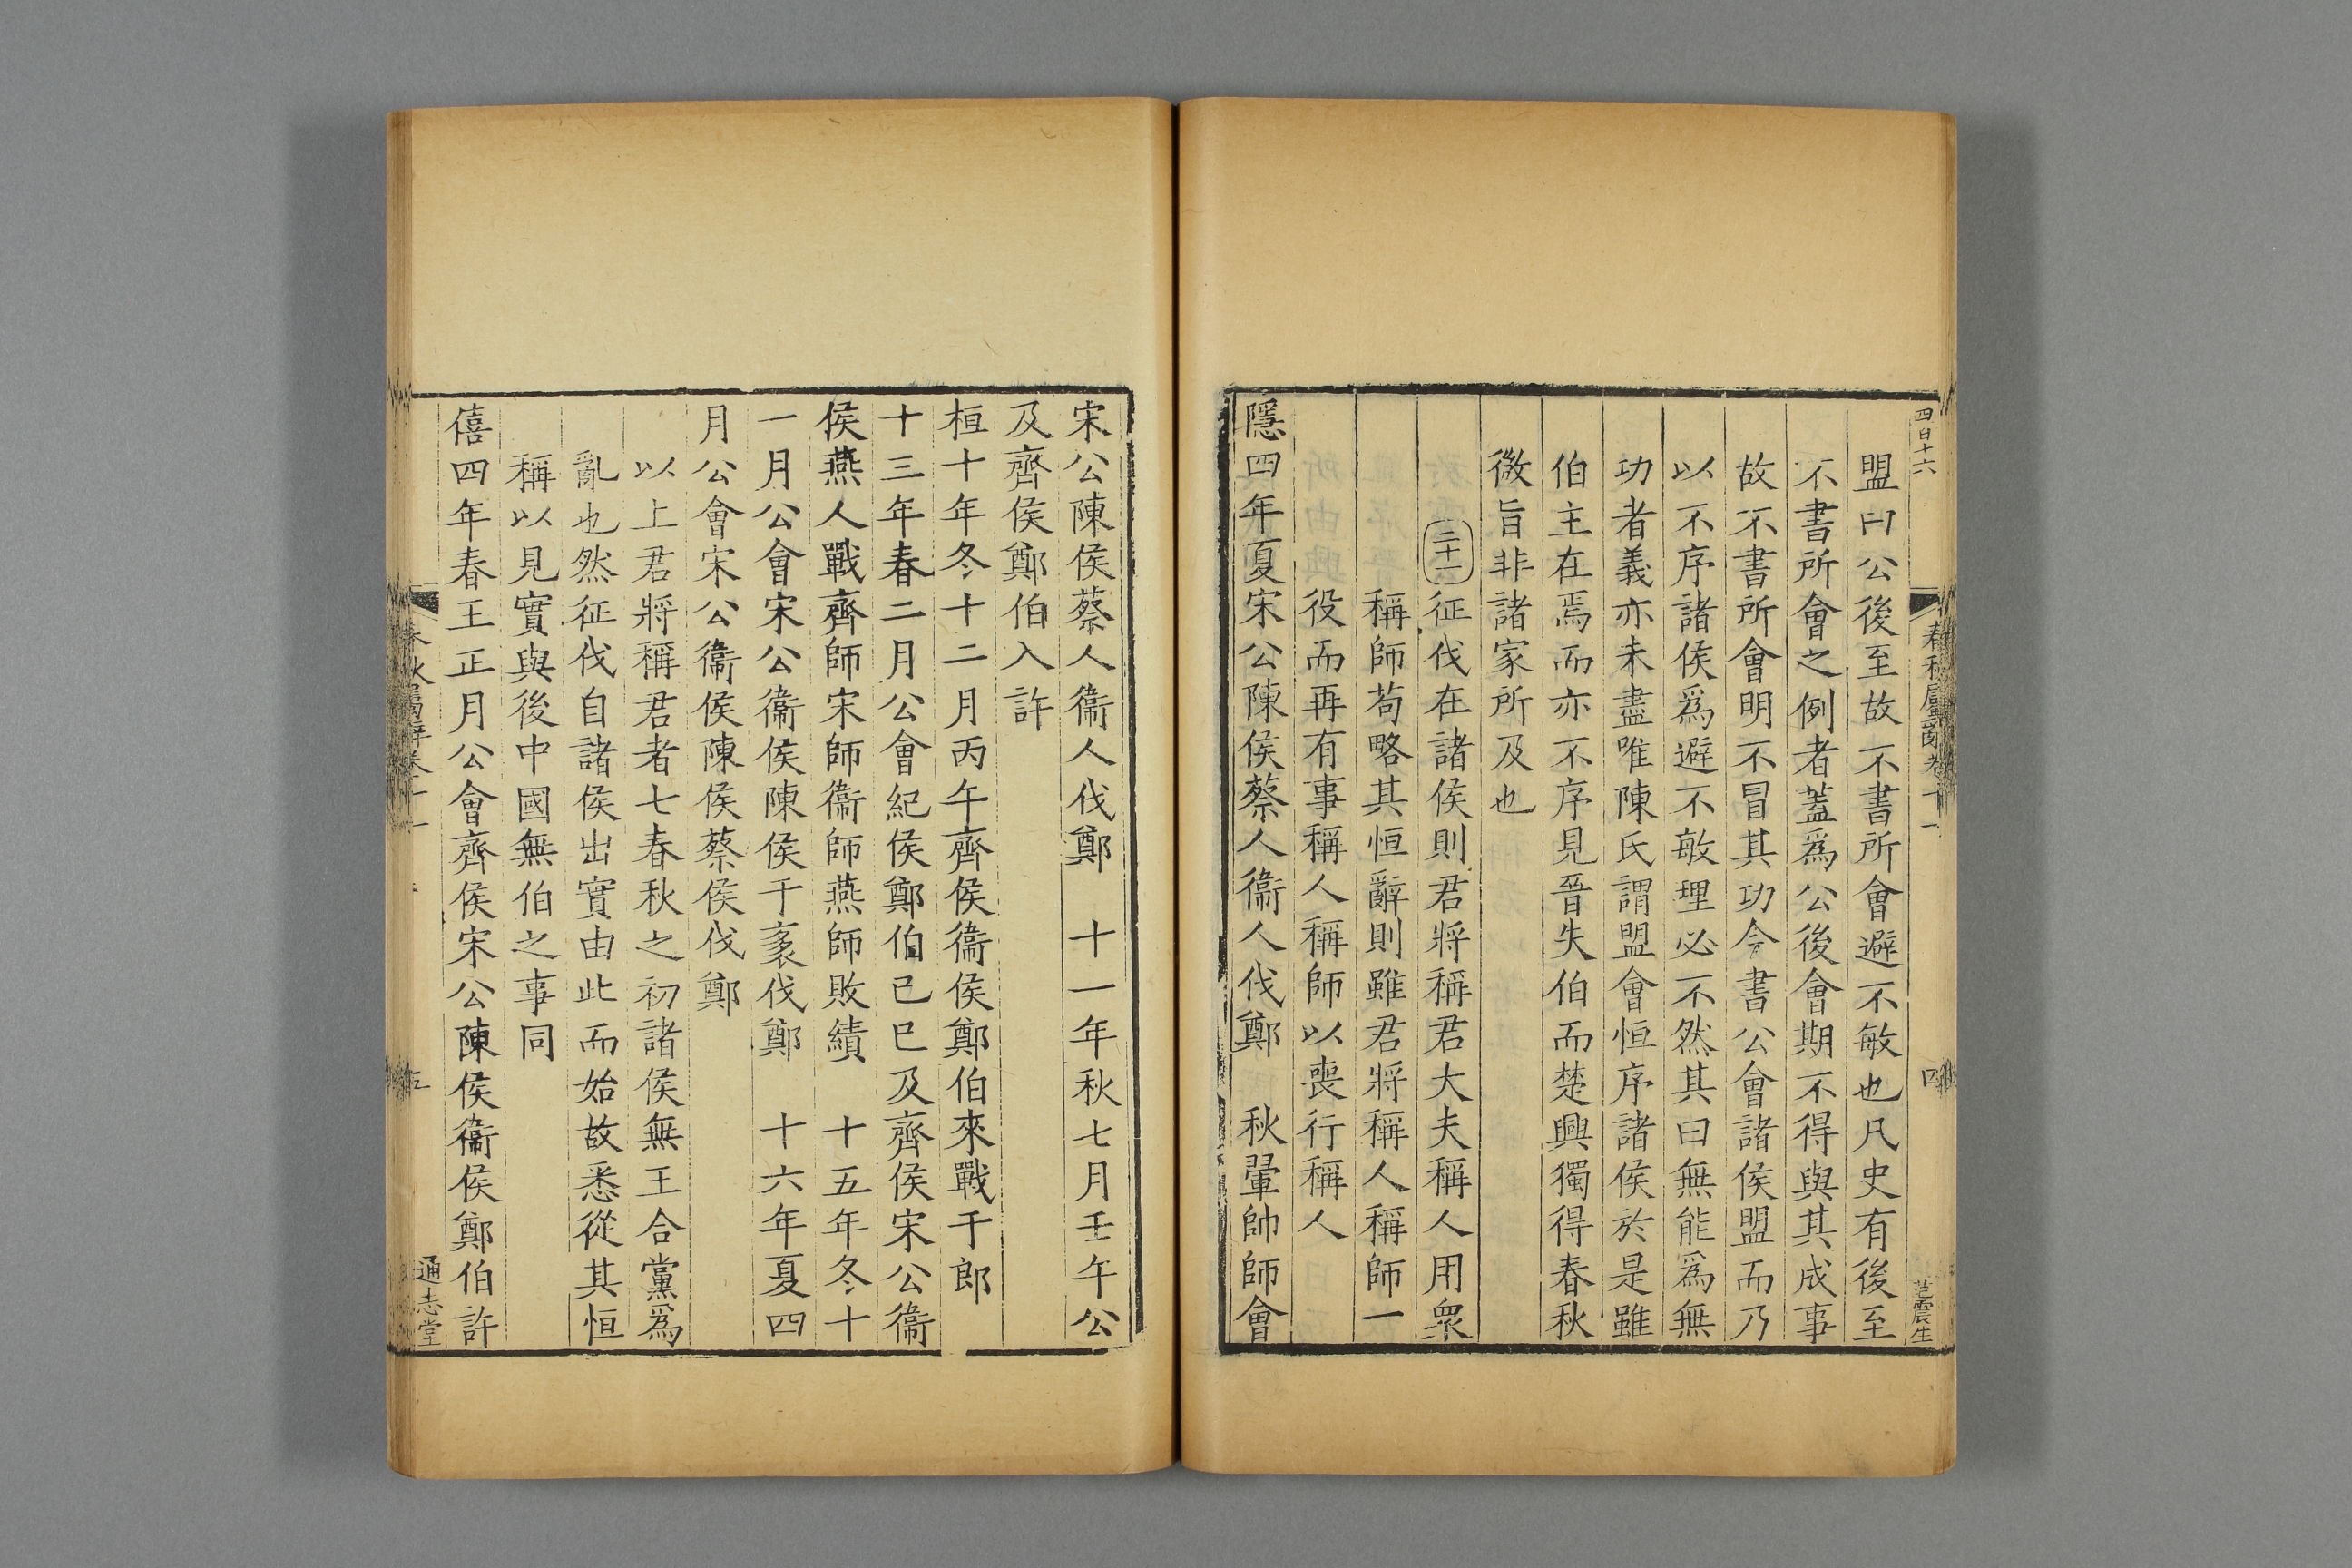 四百十六
春秋屬辭卷十一
四
范震生
盟曰公後至故不書所會避不敏也凡史有後至
不書所會之例者蓋爲公後會期不得與其成事
故不書所會明不冒其功今書公會諸侯盟而乃
以不序諸侯爲避不敏理必不然其曰無能爲無
功者義亦未盡唯陳氏謂盟會恒序諸侯於是雖
伯主在焉而亦不序見晉失伯而楚興獨得春秋
微旨非諸家所及也
二十一征伐在諸侯則君將稱君大夫稱人用衆
稱師苟略其恒辭則雖君將稱人稱師一
役而再有事稱人稱師以喪行稱人
隱四年夏宋公陳侯蔡人衞人伐鄭　秋翬帥師會
宋公陳侯蔡人衞人伐鄭　十一年秋七月壬午公
及齊侯鄭伯入許
桓十年冬十二月丙午齊侯衞侯鄭伯來戰于郎
十三年春二月公會紀侯鄭伯己巳及齊侯宋公衞
侯燕人戰齊師宋師衞師燕師敗績　十五年冬十
一月公會宋公衞侯陳侯于袲伐鄭　十六年夏四
月公會宋公衞侯陳侯蔡侯伐鄭
以上君將稱君者七春秋之初諸侯無王合黨爲
亂也然征伐自諸侯出實由此而始故悉從其恒
稱以見實與後中國無伯之事同
僖四年春王正月公會齊侯宋公陳侯衞侯鄭伯許
春秋屬辭卷十一
五
通志堂